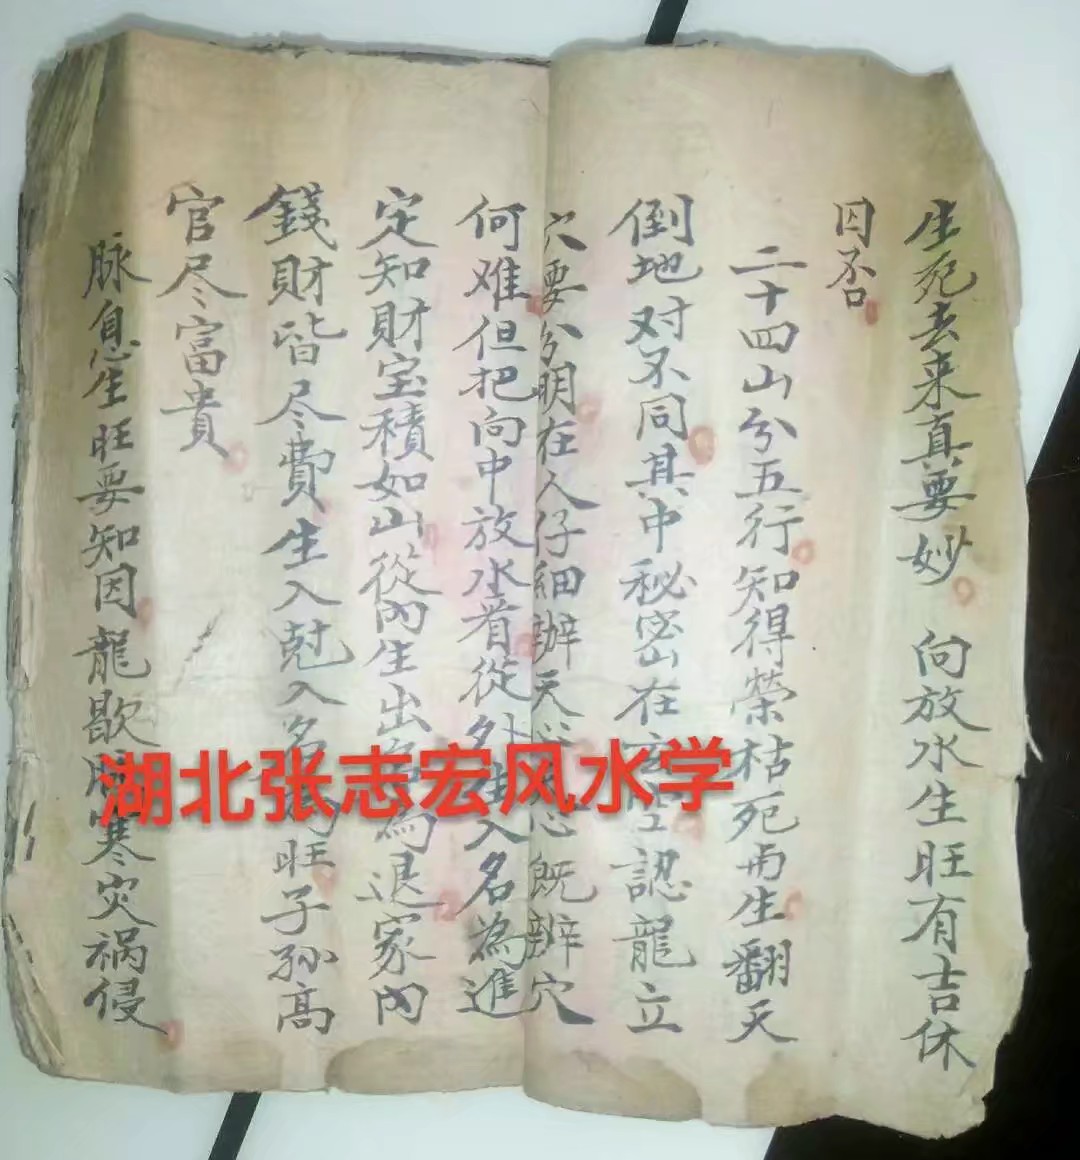 生死去来真要妙 向放水生旺有吉休
囚否
二十四山分五行知得榮枯死与生翻天
倒地对不同其中秘密在玄空認龍立
穴要分明在人仔细辦天心既辨穴
何难但把向中放水看從外生入名為進
定知財宝積如山從內生出名為退家內
錢財皆尽費生入尅入名為旺子孙高
官尽富貴
脉息生旺要知因龍歇脉寒灾祸侵
湖北张志宏风水学